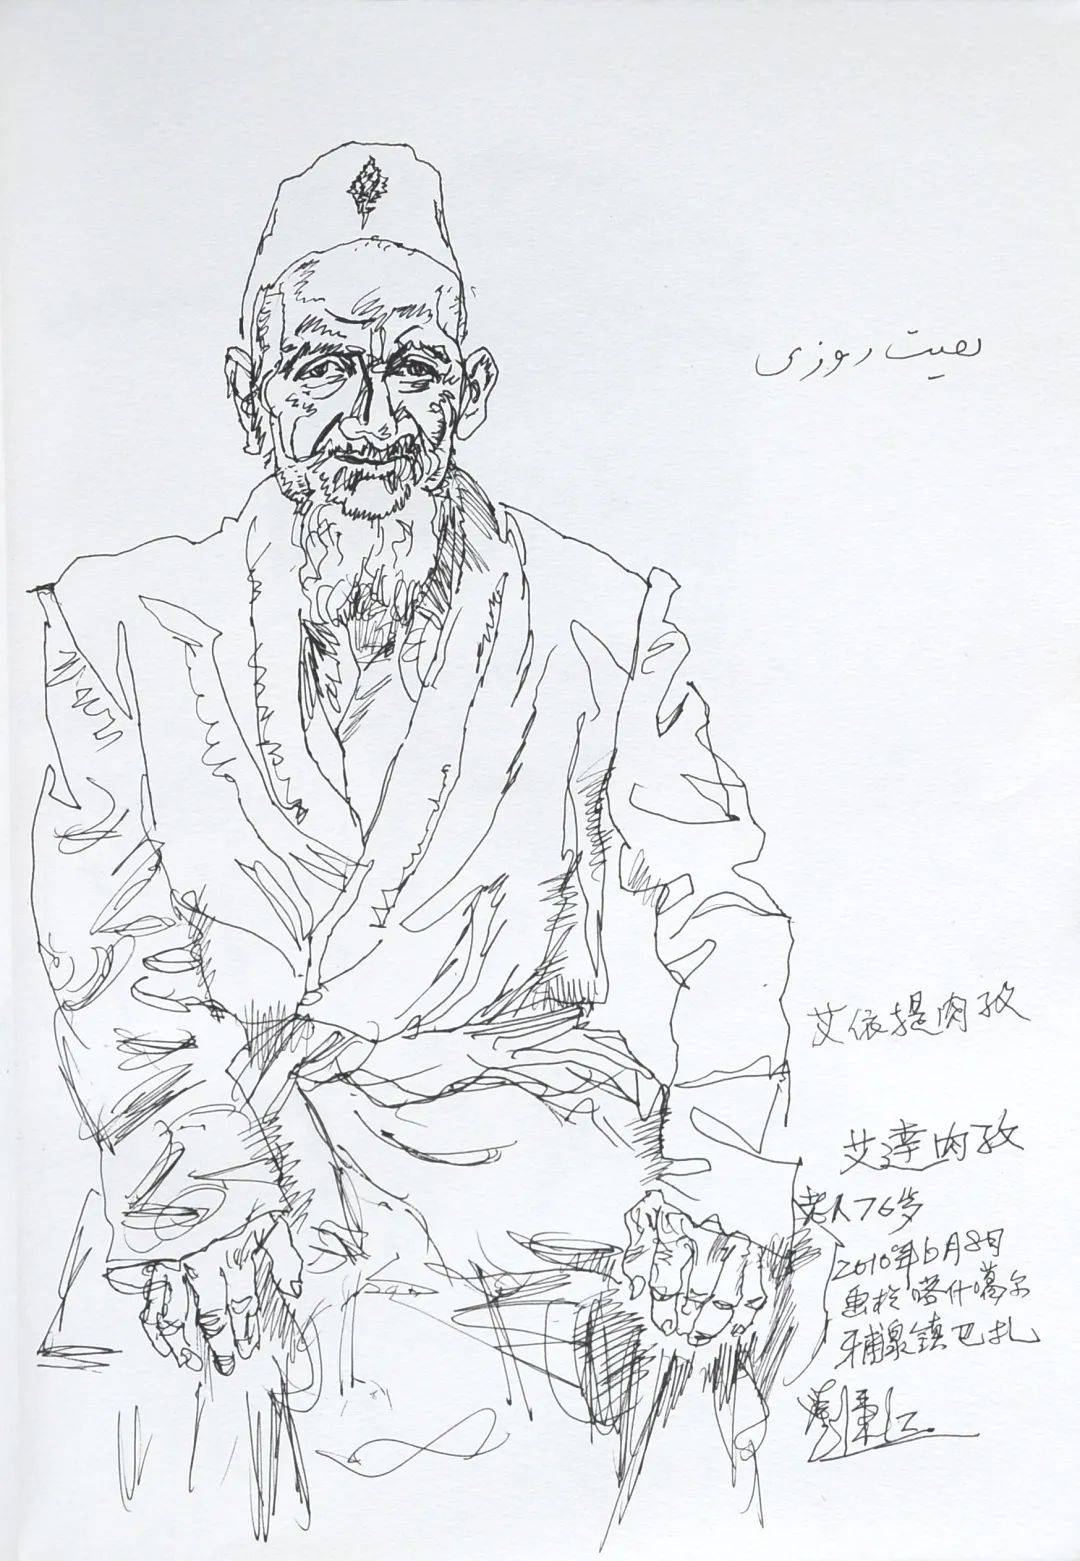 ھېيت روزى
艾依提肉孜
艾達肉孜
老人76岁
2010年6月8日
画於喀什噶尔
牙甫泉镇巴扎